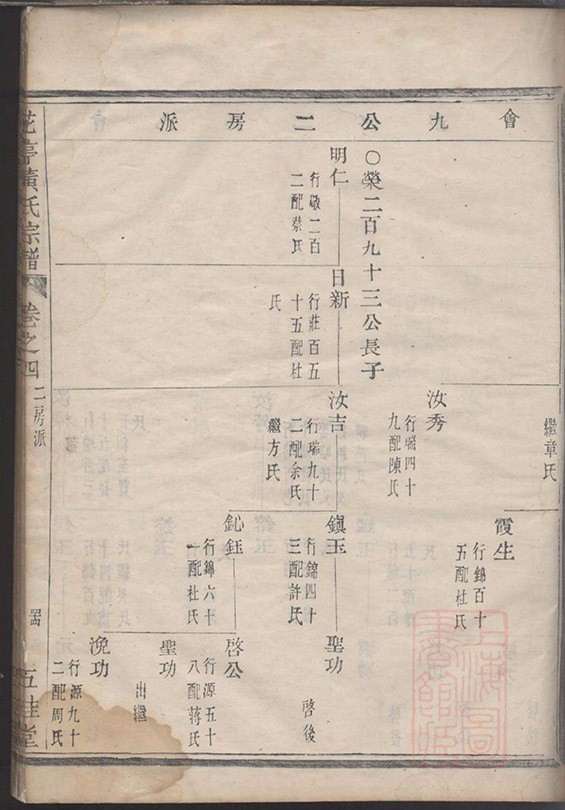 會九公二房派
○榮二百九十三公長子
明仁
行敬二百
二配蔡氏
日新
行莊百五
十五配杜
氏
繼章氏
汝秀
行瑞四十
九配陳氏
汝吉
行瑞九十
二配余氏
繼方氏
霞生
行錦百十
五配杜氏
鎭玉
行錦四十
三配許氏
鈊鈺
行錦六十
一配杜氏
聖功
啓後
啓公
行源五十
八配蔣氏
聖功
出繼
浼功
行源九十
二配周氏
花亭黃氏宗譜
卷之四
二房派
五桂堂
上海圖書館藏